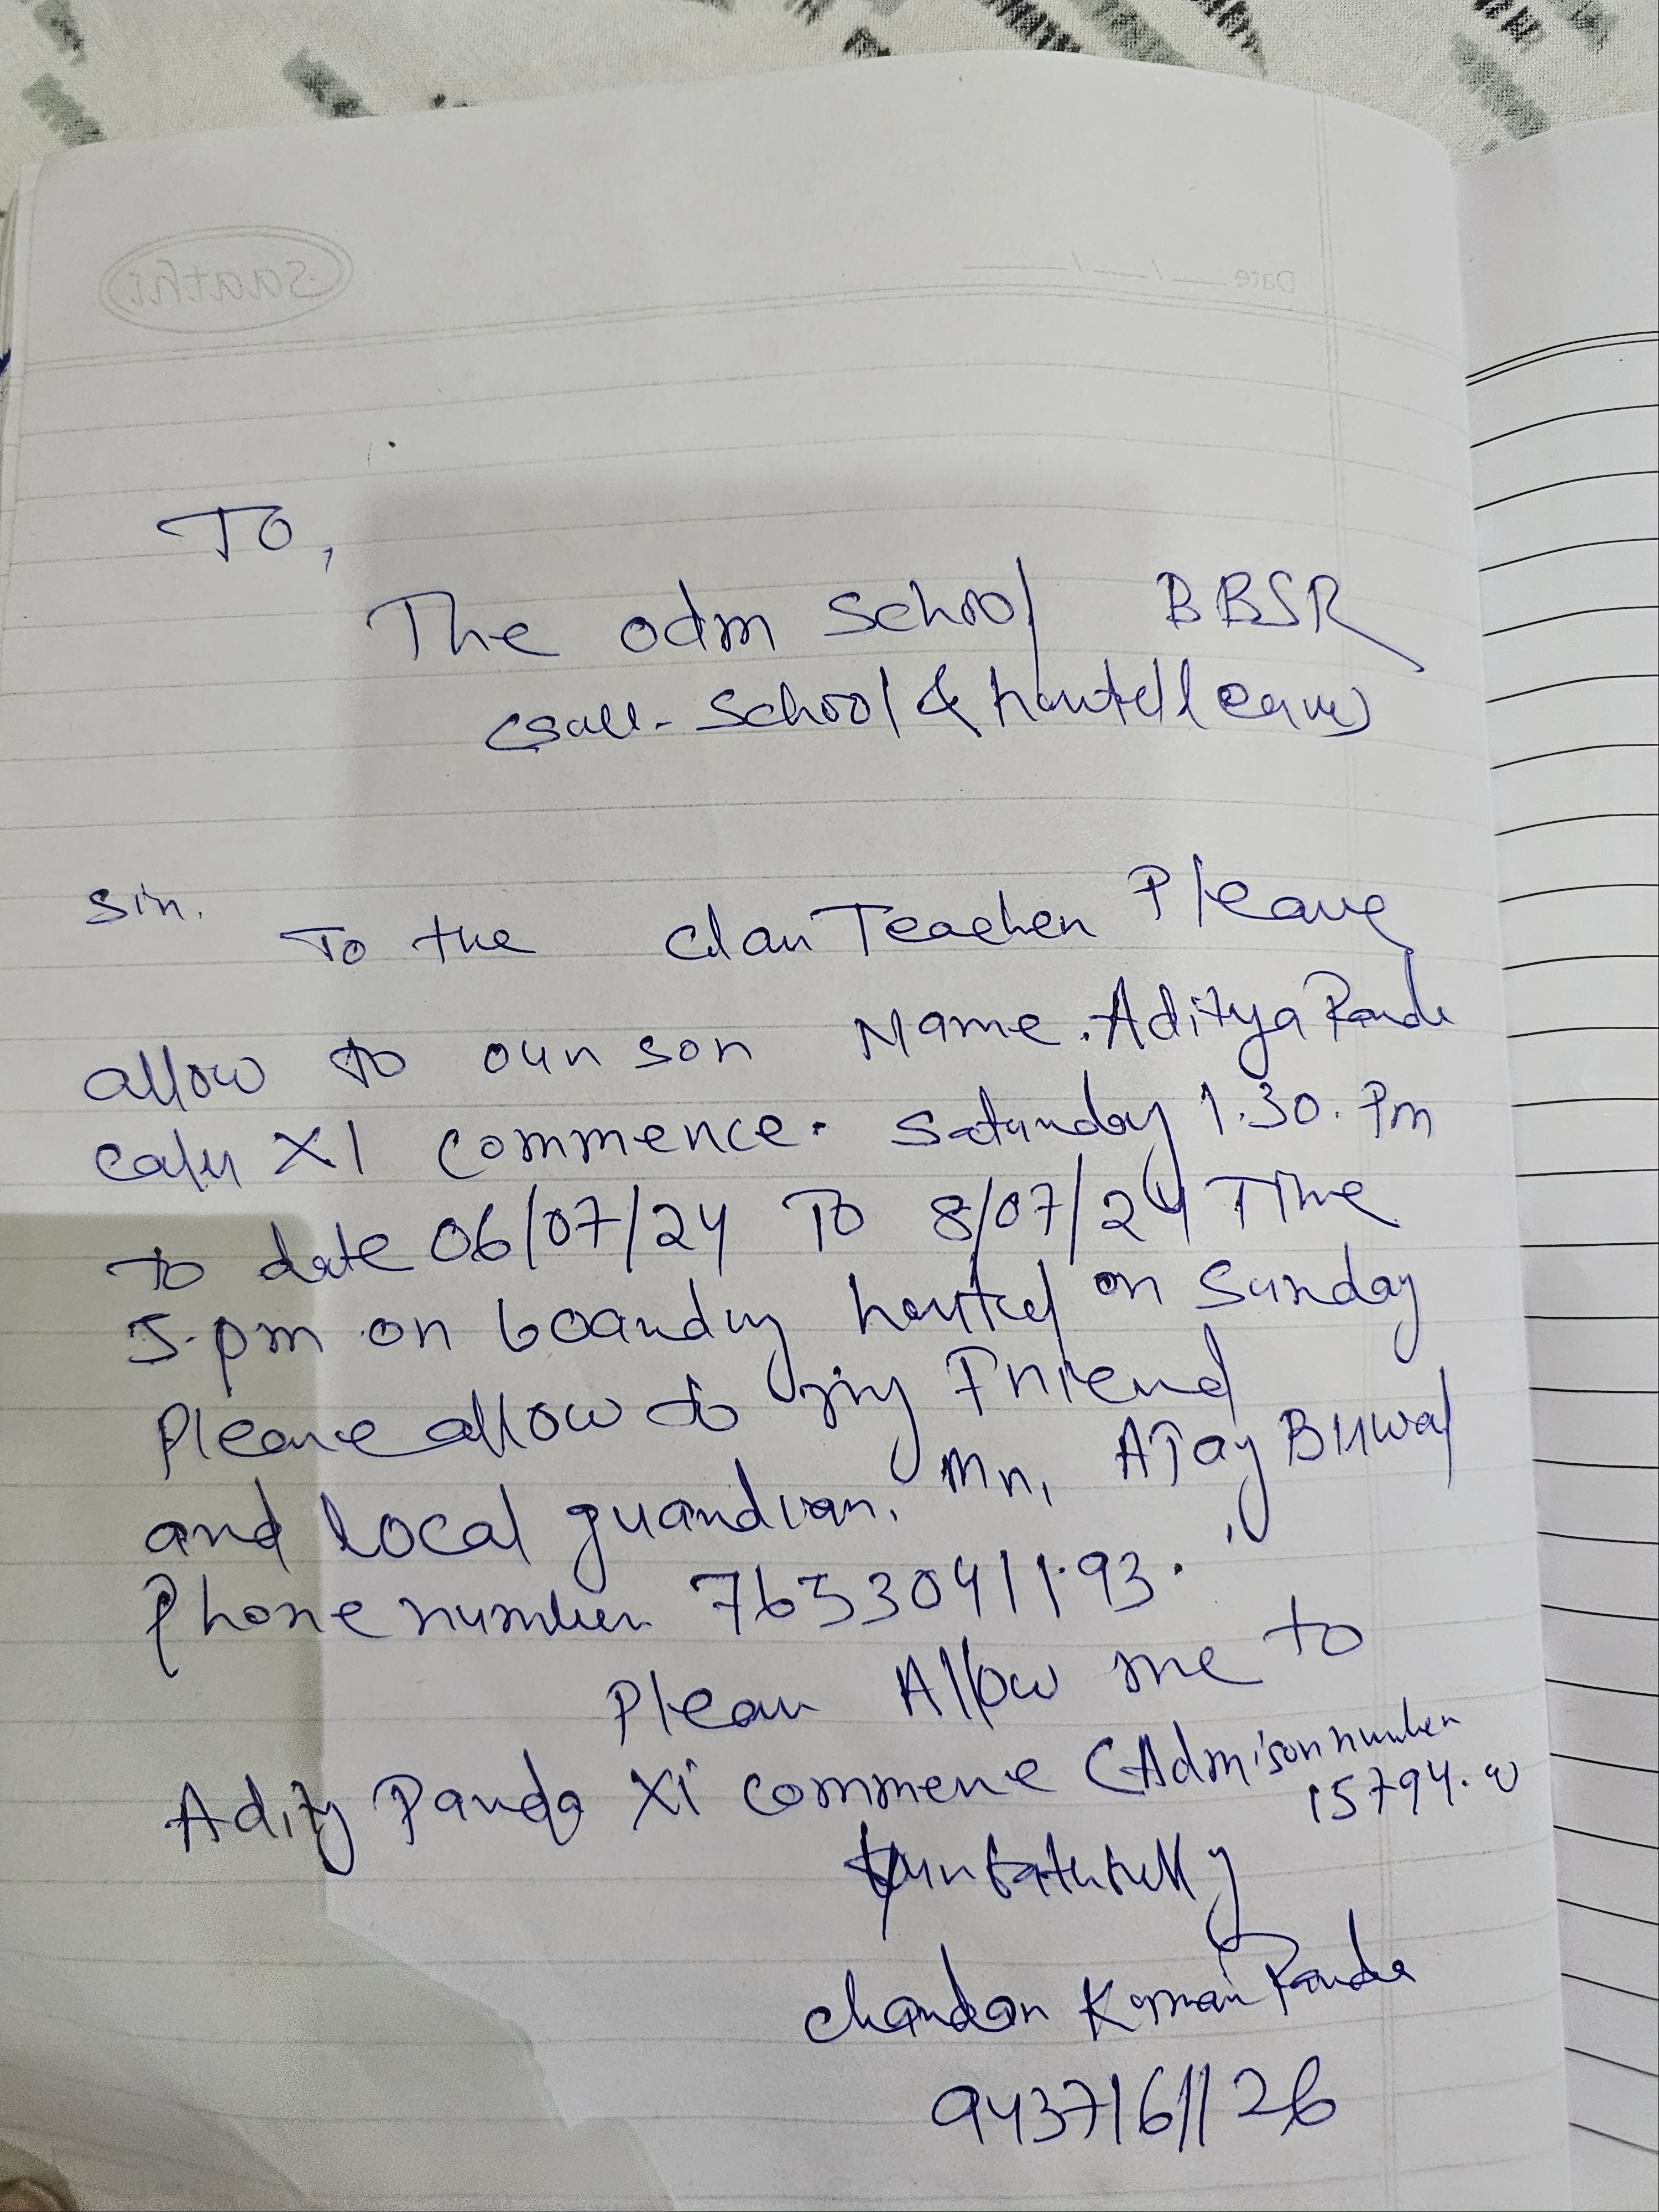 Saathi
Date
TO,
The odm School BBSR
School & hostel leave)
Sir.
To the Class Teacher Please
allow to our son Name. Aditya Panda
XI Commence. Saturday 1.30. Pm
to date 06/07/24 To 8/07/24 Time
5.pm on boarding hostel on Sunday
Please allow to my Friend
and local guardian, Mr, AJay
Phone number 7653041193.
Please Allow me to
Adity Panda XI commene (Admison number
15794.
Chandan Kumar Panda
9437161126